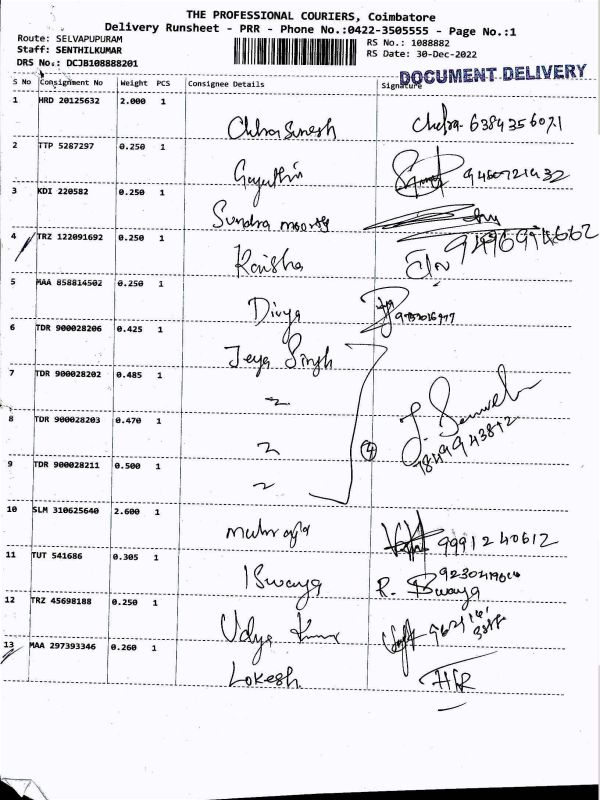 THE PROFESSIONAL COURIERS, Coimbatore
Delivery Runsheet - PRR - Phone No.:0422-3505555 - Page No.:1
Route: SELVAPUPURAM
RS No.: 1088882
Staff: SENTHILKUMAR
RS Date: 30-Dec-2022
DRS No.: DCJB108888201
DOCUMENT DELIVERY
S No Consignment No Weight PCS Consignee Details Signature
1 HRD 20125632 2.000 1
6384356071
2 TTP 5287297 0.250 1
Gayathri 9460721432
3 KDI 220582 0.250 1
Sundra moorthy
4 TRZ 122091692 0.250 1
Kaisha
5 MAA 858814502 0.250 1
Divya
6 TDR 900028206 0.425 1
Jeya Singh
7 TDR 900028202 0.485 1
8 TDR 900028203 0.470 1
④
9 TDR 900028211 0.500 1
10 SLM 310625640 2.600 1
9991240612
11 TUT 541686 0.305 1
ISwarya R.
12 TRZ 45698188 0.250 1
Udya Kumar
13 MAA 297393346 0.260 1
Lokesh